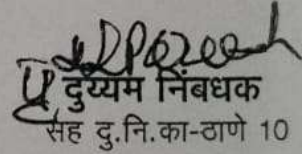 दुय्यम निंबधक
सह दु.नि.का-ठाणे 10